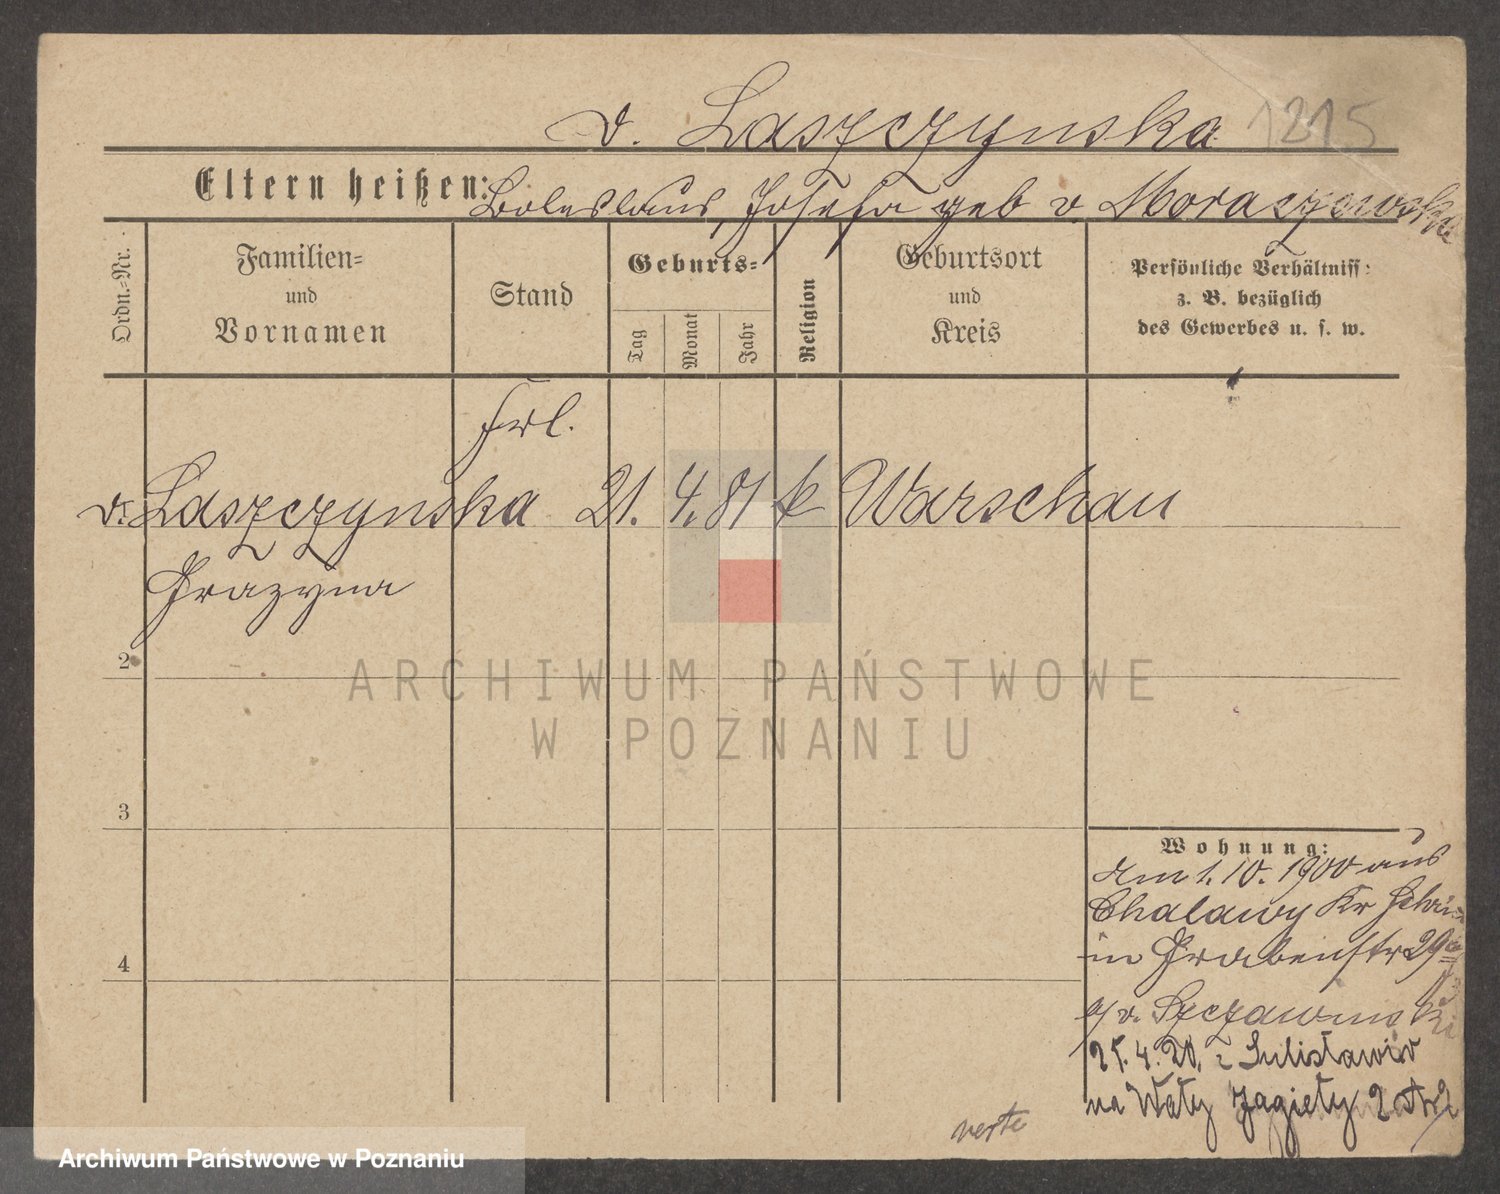 v. Laszczynska 1215
Eltern heißen: Boleslaus, Josefa geb v Moraczewska
Ordn.=Nr.
Familien=
und
Vornamen
Stand
Geburts=
Tag
Monat
Jahr
Religion
Geburtsort
und
Kreis
Persönliche Verhältniss:
z. B. bezüglich
des Gewerbes u. s. w.
Frl.
v. Laszczynska 21. 4. 81 k Warschau
Grazyna
2
3
4
Wohnung:
Am 1. 10. 1900 aus
Chalawy Kr
in Grabenstr 29
b/ v. Szczawinski
25. 4. 20. z Sulisławiw
na Wały Jagiełły 2
verte
ARCHIWUM PAŃSTWOWE
W POZNANIU
Archiwum Państwowe w Poznaniu